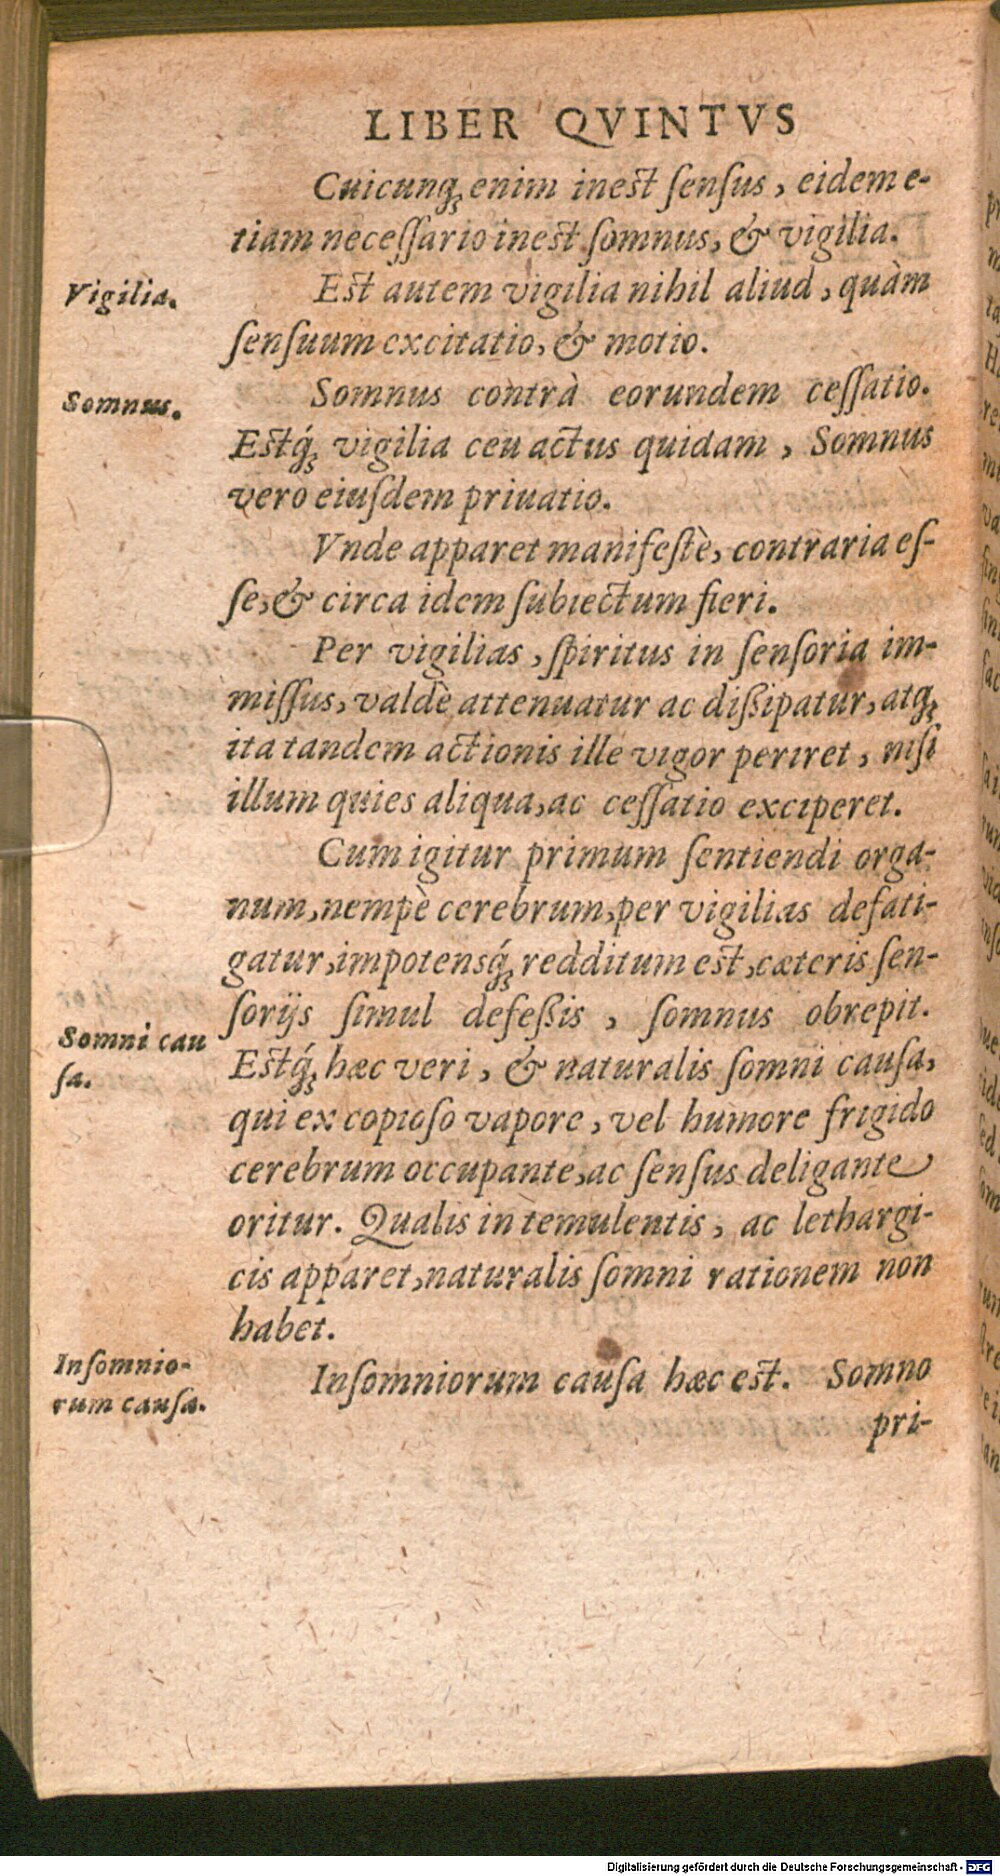 LIBER QVINTVS
Cuicunq; enim ineſt ſenſus, eidem e-
tiam neceſſario ineſt ſomnus, & vigilia.
Vigilia.
Eſt autem vigilia nihil aliud, quàm
ſenſuum excitatio, & motio.
Somnus.
Somnus contrà eorundem ceſſatio.
Eſtq́; vigilia ceu actus quidam, Somnus
vero eiuſdem priuatio.
Vnde apparet manifeſtè, contraria eſ-
ſe, & circa idem ſubiectum fieri.
Per vigilias, ſpiritus in ſenſoria im-
miſſus, valdè attenuatur ac diſsipatur, atq;
ita tandem actionis ille vigor periret, niſi
illum quies aliqua, ac ceſſatio exciperet.
Cum igitur primum ſentiendi orga-
num, nempè cerebrum, per vigilias defati-
gatur, impotensq́; redditum eſt, cæteris ſen-
ſorijs ſimul defeſsis, ſomnus obrepit.
Somni cau
ſa.
Eſtq́; hæc veri, & naturalis ſomni cauſa,
qui ex copioſo vapore, vel humore frigido
cerebrum occupante, ac ſenſus deligante
oritur. Qualis in temulentis, ac lethargi-
cis apparet, naturalis ſomni rationem non
habet.
Inſomnio-
rum cauſa.
Inſomniorum cauſa hæc eſt. Somno
pri-
Digitalisierung gefördert durch die Deutsche Forschungsgemeinschaft - DFG